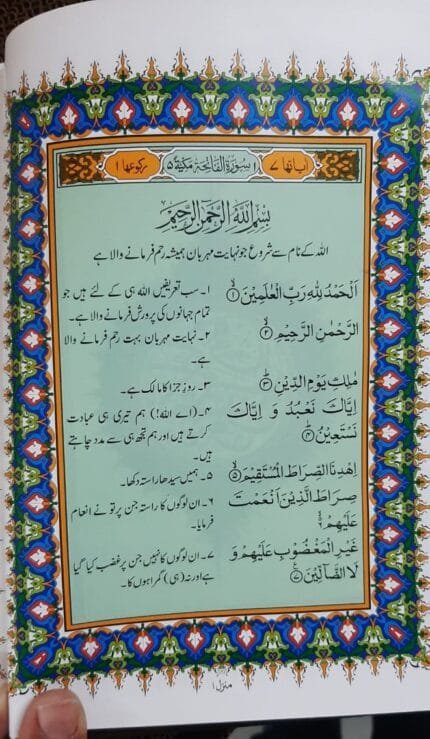 اٰیاتها ۷ ۱ سُوْرَةُ الْفَاتِحَةِ مَكِّيَّةٌ ۵ رکوعها ۱
بِسْمِ اللّٰهِ الرَّحْمٰنِ الرَّحِيْمِ
اللہ کے نام سے شروع جو نہایت مہربان ہمیشہ رحم فرمانے والا ہے
اَلْحَمْدُ لِلّٰهِ رَبِّ الْعٰلَمِيْنَ ۙ۝۱
۱۔ سب تعریفیں اللہ ہی کے لئے ہیں جو
تمام جہانوں کی پرورش فرمانے والا ہے۔
الرَّحْمٰنِ الرَّحِيْمِ ۙ۝۲
۲۔ نہایت مہربان بہت رحم فرمانے والا
ہے۔
مٰلِكِ يَوْمِ الدِّيْنِ ؕ۝۳
۳۔ روزِ جزا کا مالک ہے۔
اِيَّاكَ نَعْبُدُ وَ اِيَّاكَ
نَسْتَعِيْنُ ؕ۝۴
۴۔ (اے اللہ!) ہم تیری ہی عبادت
کرتے ہیں اور ہم تجھ ہی سے مدد چاہتے
ہیں۔
اِهْدِنَا الصِّرَاطَ الْمُسْتَقِيْمَ ۙ۝۵
۵۔ ہمیں سیدھا راستہ دکھا۔
صِرَاطَ الَّذِيْنَ اَنْعَمْتَ
عَلَيْهِمْ ۙ۝۶
۶۔ ان لوگوں کا راستہ جن پر تو نے انعام
فرمایا۔
غَيْرِ الْمَغْضُوْبِ عَلَيْهِمْ وَ
لَا الضَّآلِّيْنَ ۠۝۷
۷۔ ان لوگوں کا نہیں جن پر غضب کیا گیا
ہے اور نہ (ہی) گمراہوں کا۔
منزل ۱